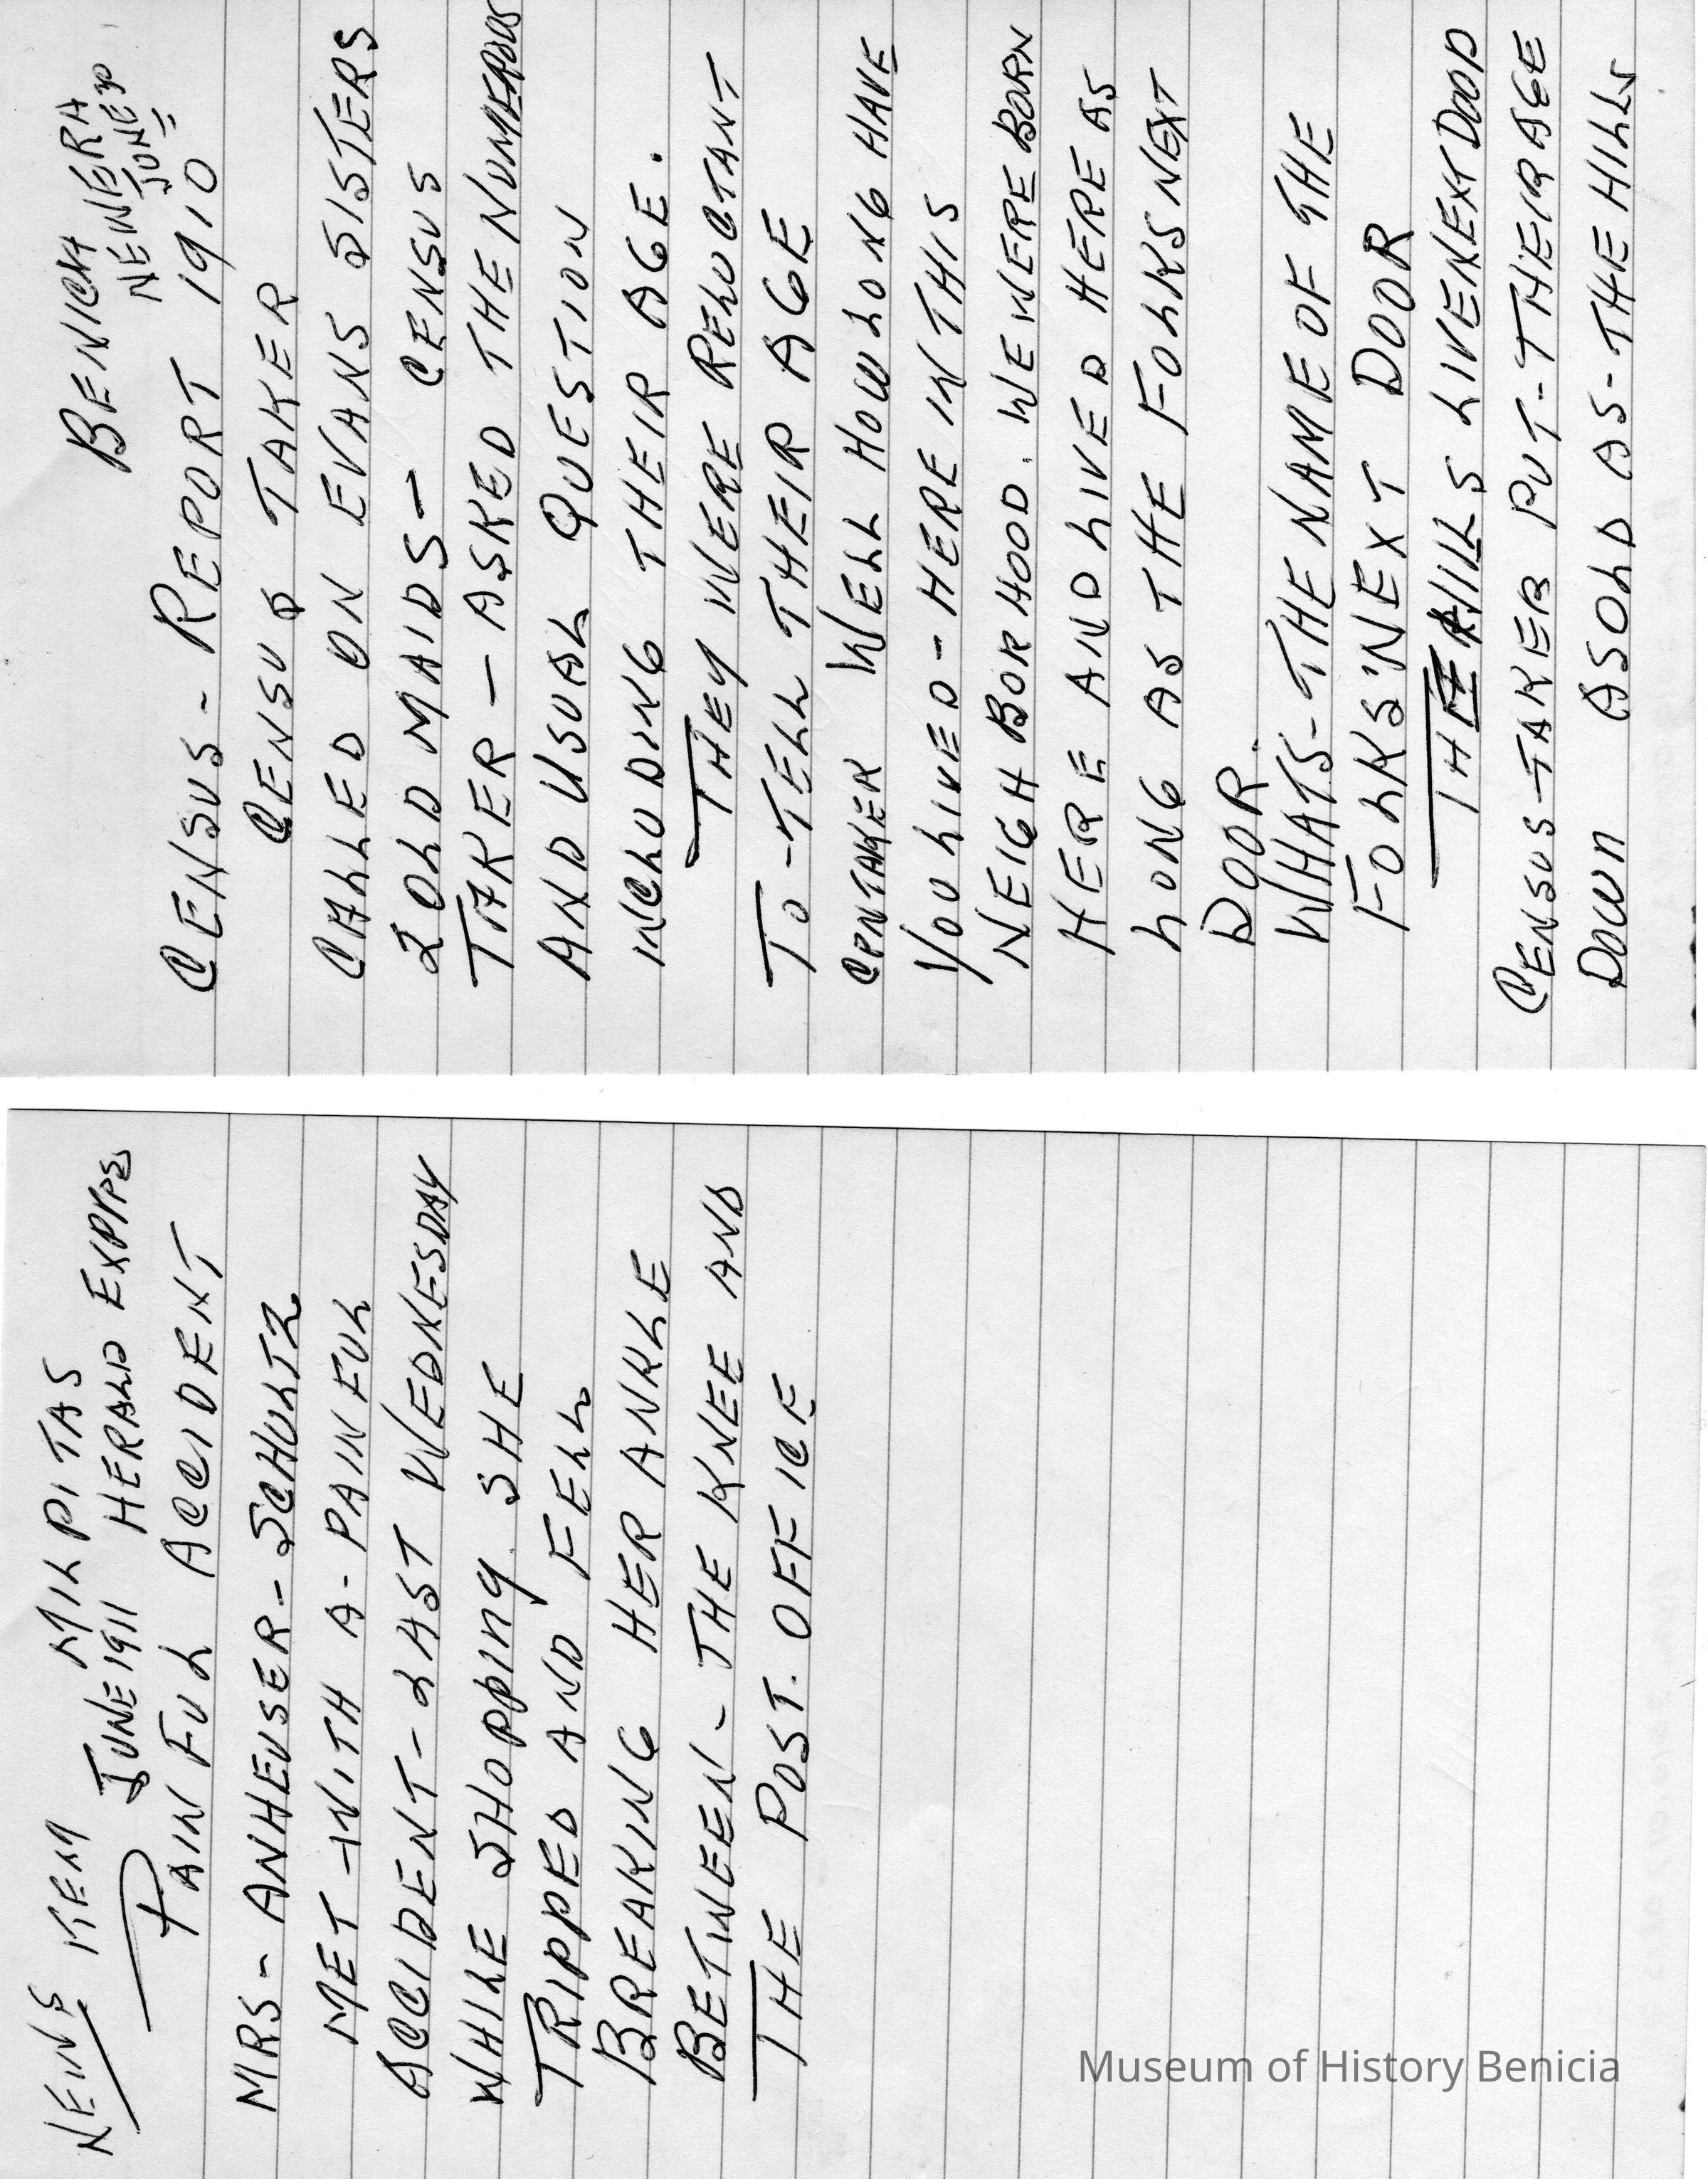 BENICIA
NEW ERA
JUNE
CENSUS - REPORT 1910
CENSUS TAKER
CALLED ON EVANS SISTERS
2 OLD MAIDS - CENSUS
TAKER - ASKED THE NUMEROUS
AND USUAL QUESTION
INCLUDING THEIR AGE.
THEY WERE RELUCTANT
TO - TELL THEIR AGE
CENTAKER WELL HOW LONG HAVE
YOU LIVED - HERE IN THIS
NEIGHBORHOOD. WE WERE BORN
HERE AND LIVED HERE AS
LONG AS THE FOLKS NEXT
DOOR.
WHATS - THE NAME OF THE
FOLKS' NEXT DOOR
THE HILLS LIVE NEXT DOOD
CENSUS - TAKER PUT - THEIR AGE
DOWN AS OLD AS - THE HILLS
NEWS ITEM MILPITAS
JUNE 1911 HERALD
PAINFUL ACCIDENT
MRS - ANHEUSER - SCHULTZ
MET WITH A - PAINFUL
ACCIDENT - LAST WEDNESDAY
WHILE SHOPPING SHE
TRIPPED AND FELL
BREAKING HER ANKLE
BETWEEN - THE KNEE AND
THE POST. OFFICE
Museum of History Benicia